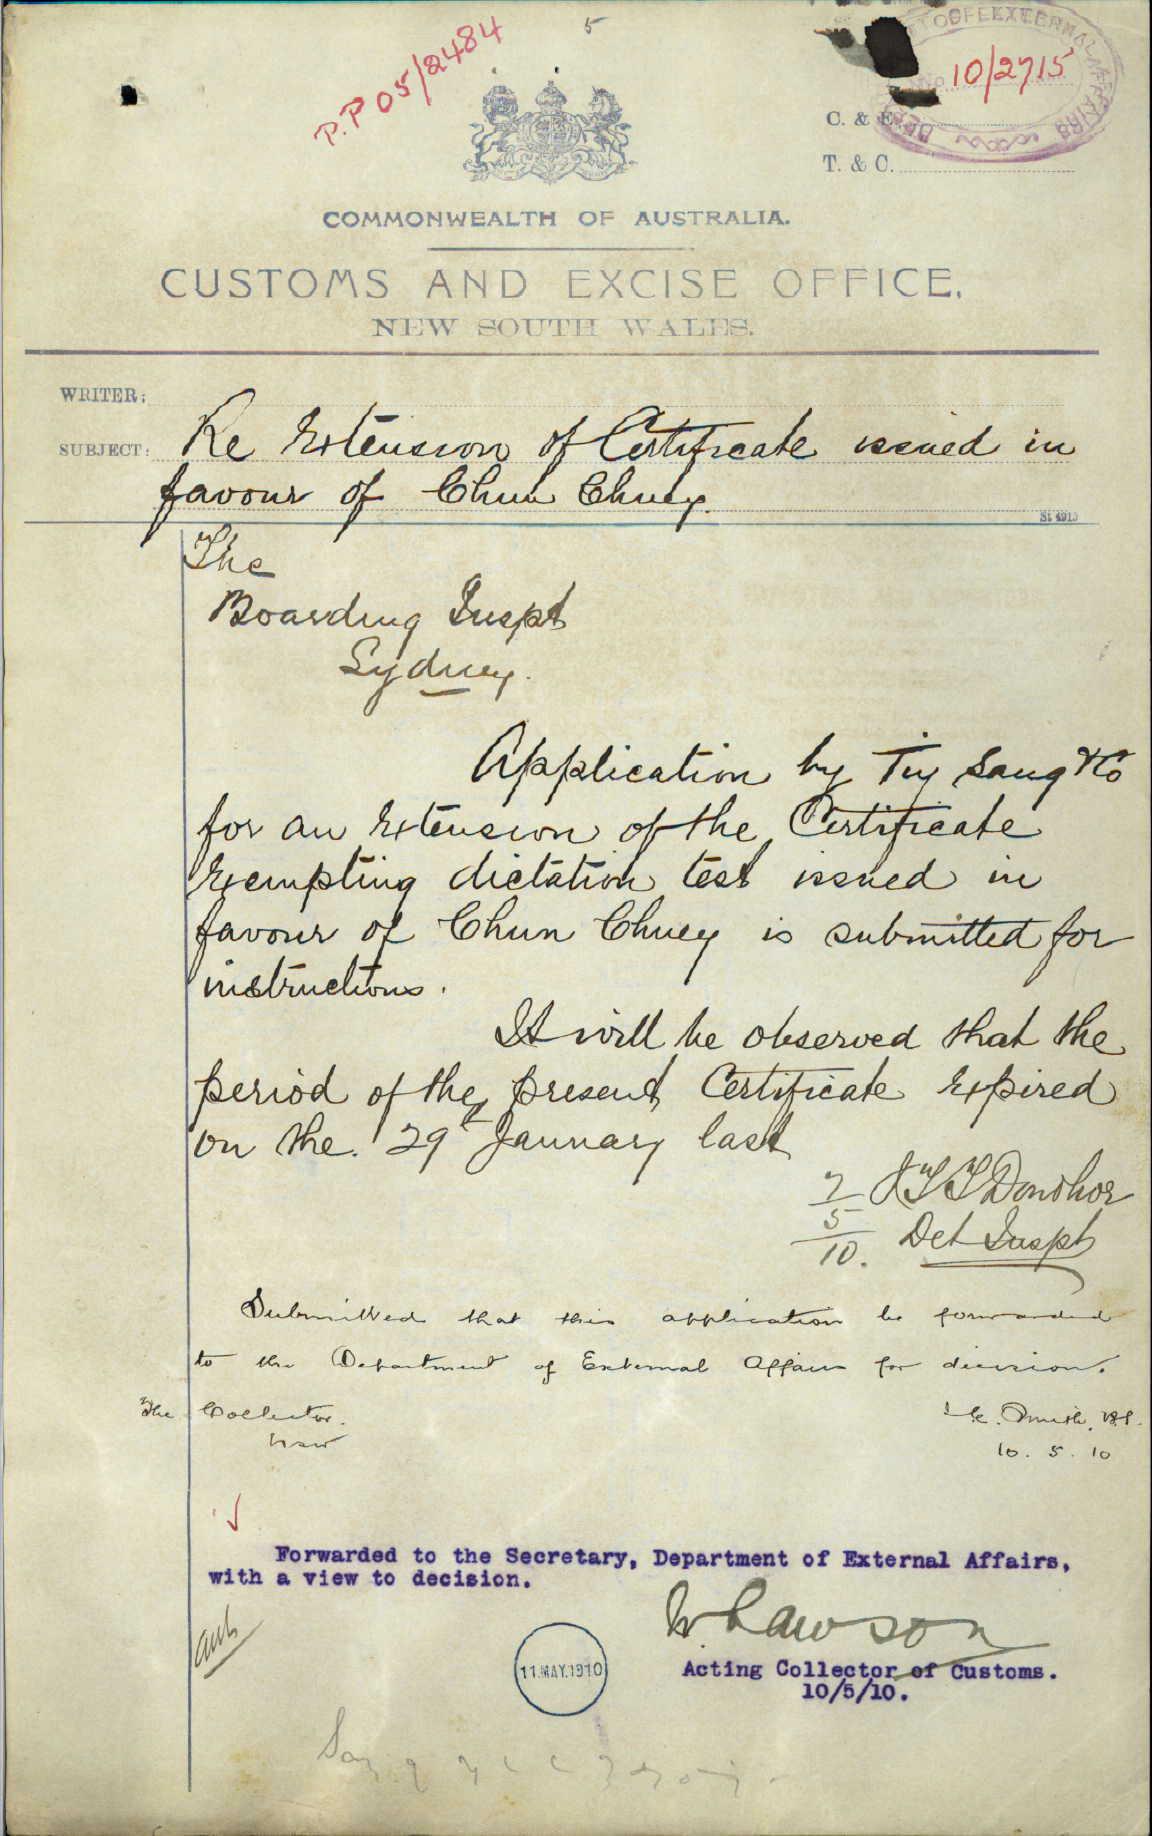 5
P.P 05/2484
DEPT OF EXTERNAL AFFAIRS
No 10/2715
C. & E.
T. & C.
COMMONWEALTH OF AUSTRALIA.
CUSTOMS AND EXCISE OFFICE.
NEW SOUTH WALES.
WRITER:
SUBJECT: Re Extension of Certificate issued in
favour of Chun Chuey.
St 4913
The
Boarding Inspt
Sydney.
Application by Tiy Sang & Co
for an Extension of the Certificate
Exempting dictation test issued in
favour of Chun Chuey is submitted for
instructions.
It will be observed that the
period of the present Certificate Expired
on the 29th January last
7/5/10. J T T Donohoe
Det Inspt
Submitted that this application be forwarded
to the Department of External Affairs for decision.
The Collector.
NSW
10. 5. 10
Forwarded to the Secretary, Department of External Affairs,
with a view to decision.
W. Lawson
11.MAY.1910
Acting Collector of Customs.
10/5/10.